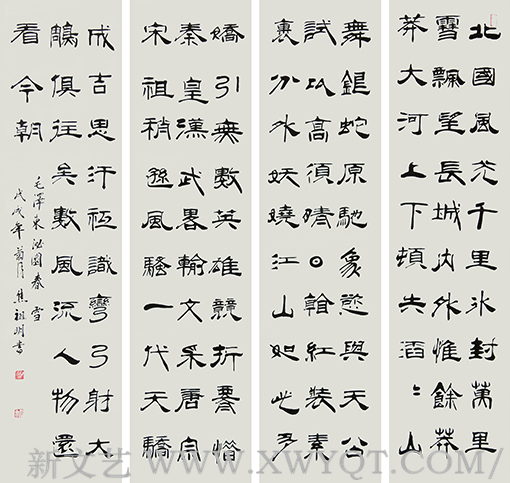 北國風光千里冰封萬里
雪飄望長城内外惟餘莽
莽大河上下頓失滔〻山
舞銀蛇原馳象慾與天公
試以高須晴日看紅裝素
裹分外妖嬈江山如此多
嬌引無數英雄競折腰惜
秦皇漢武畧輸文采唐宗
宋祖稍遜風騷一代天驕
成吉思汗祗識彎弓射大
鵰俱往矣數風流人物還
看今朝
毛澤東沁園春雪
戊戌年菊月焦祖明書
新文艺 WWW.XWYQT.COM/